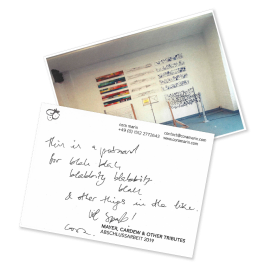 cora marin
+49 (0) 152 2772843
contact@coramarin.com
www.coramarin.com
this is a postcard
for blah blah,
blabbity blabbity
blah
& other things in the like.
Cora.
MAYER, CARDEW & OTHER TRIBUTES
ABSCHLUSSARBEIT 2019